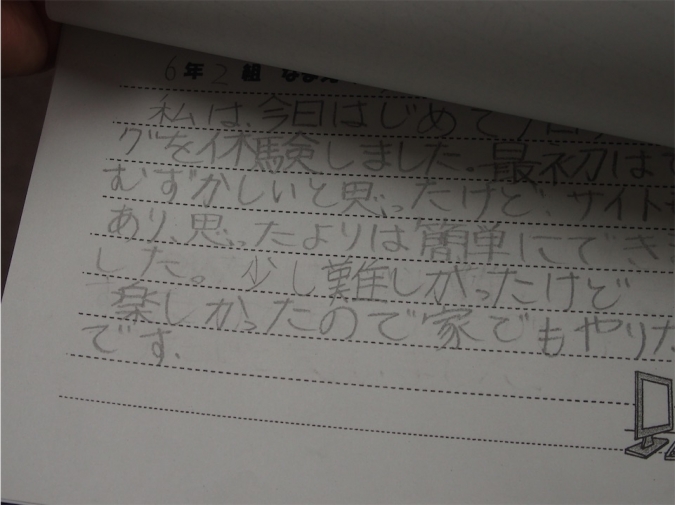 6年2組 なまえ
私は、今日はじめてプログ
グを体験しました。最初はで
むずかしいと思ったけど、サイトも
あり、思ったよりは簡単にできま
した。少し難しがったけど
楽しかったので家でもやりた
です.